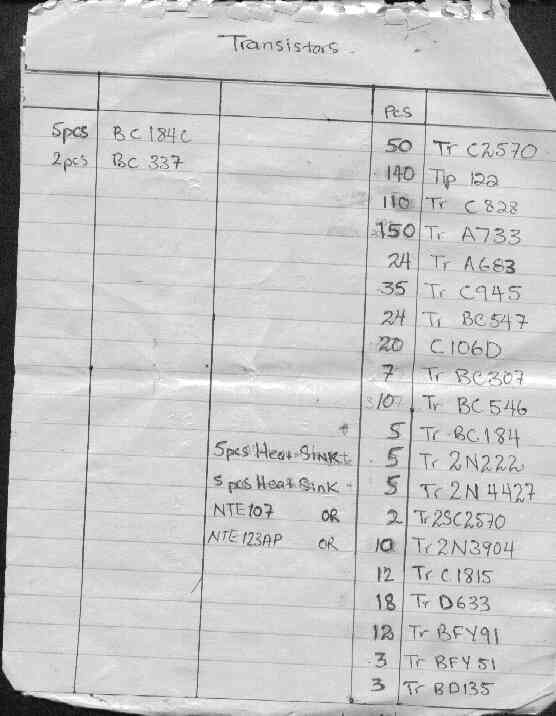 Transistors
Pcs
5pcs BC 184C 50 Tr C2570
2pcs BC 337 140 Tip 122
110 Tr C 828
150 Tr A733
24 Tr A683
35 Tr C945
24 Tr BC547
20 C106D
7 Tr BC307
10 Tr BC 546
+ 5 Tr BC184
5pcs Heat Sink + 5 Tr 2N222
5 pcs Heat Sink - 5 Tr 2N 4427
NTE107 OR 2 Tr 2SC2570
NTE123AP OR 10 Tr 2N3904
12 Tr C1815
18 Tr D633
Tr BFY91
3 Tr BFY 51
3 Tr BD135